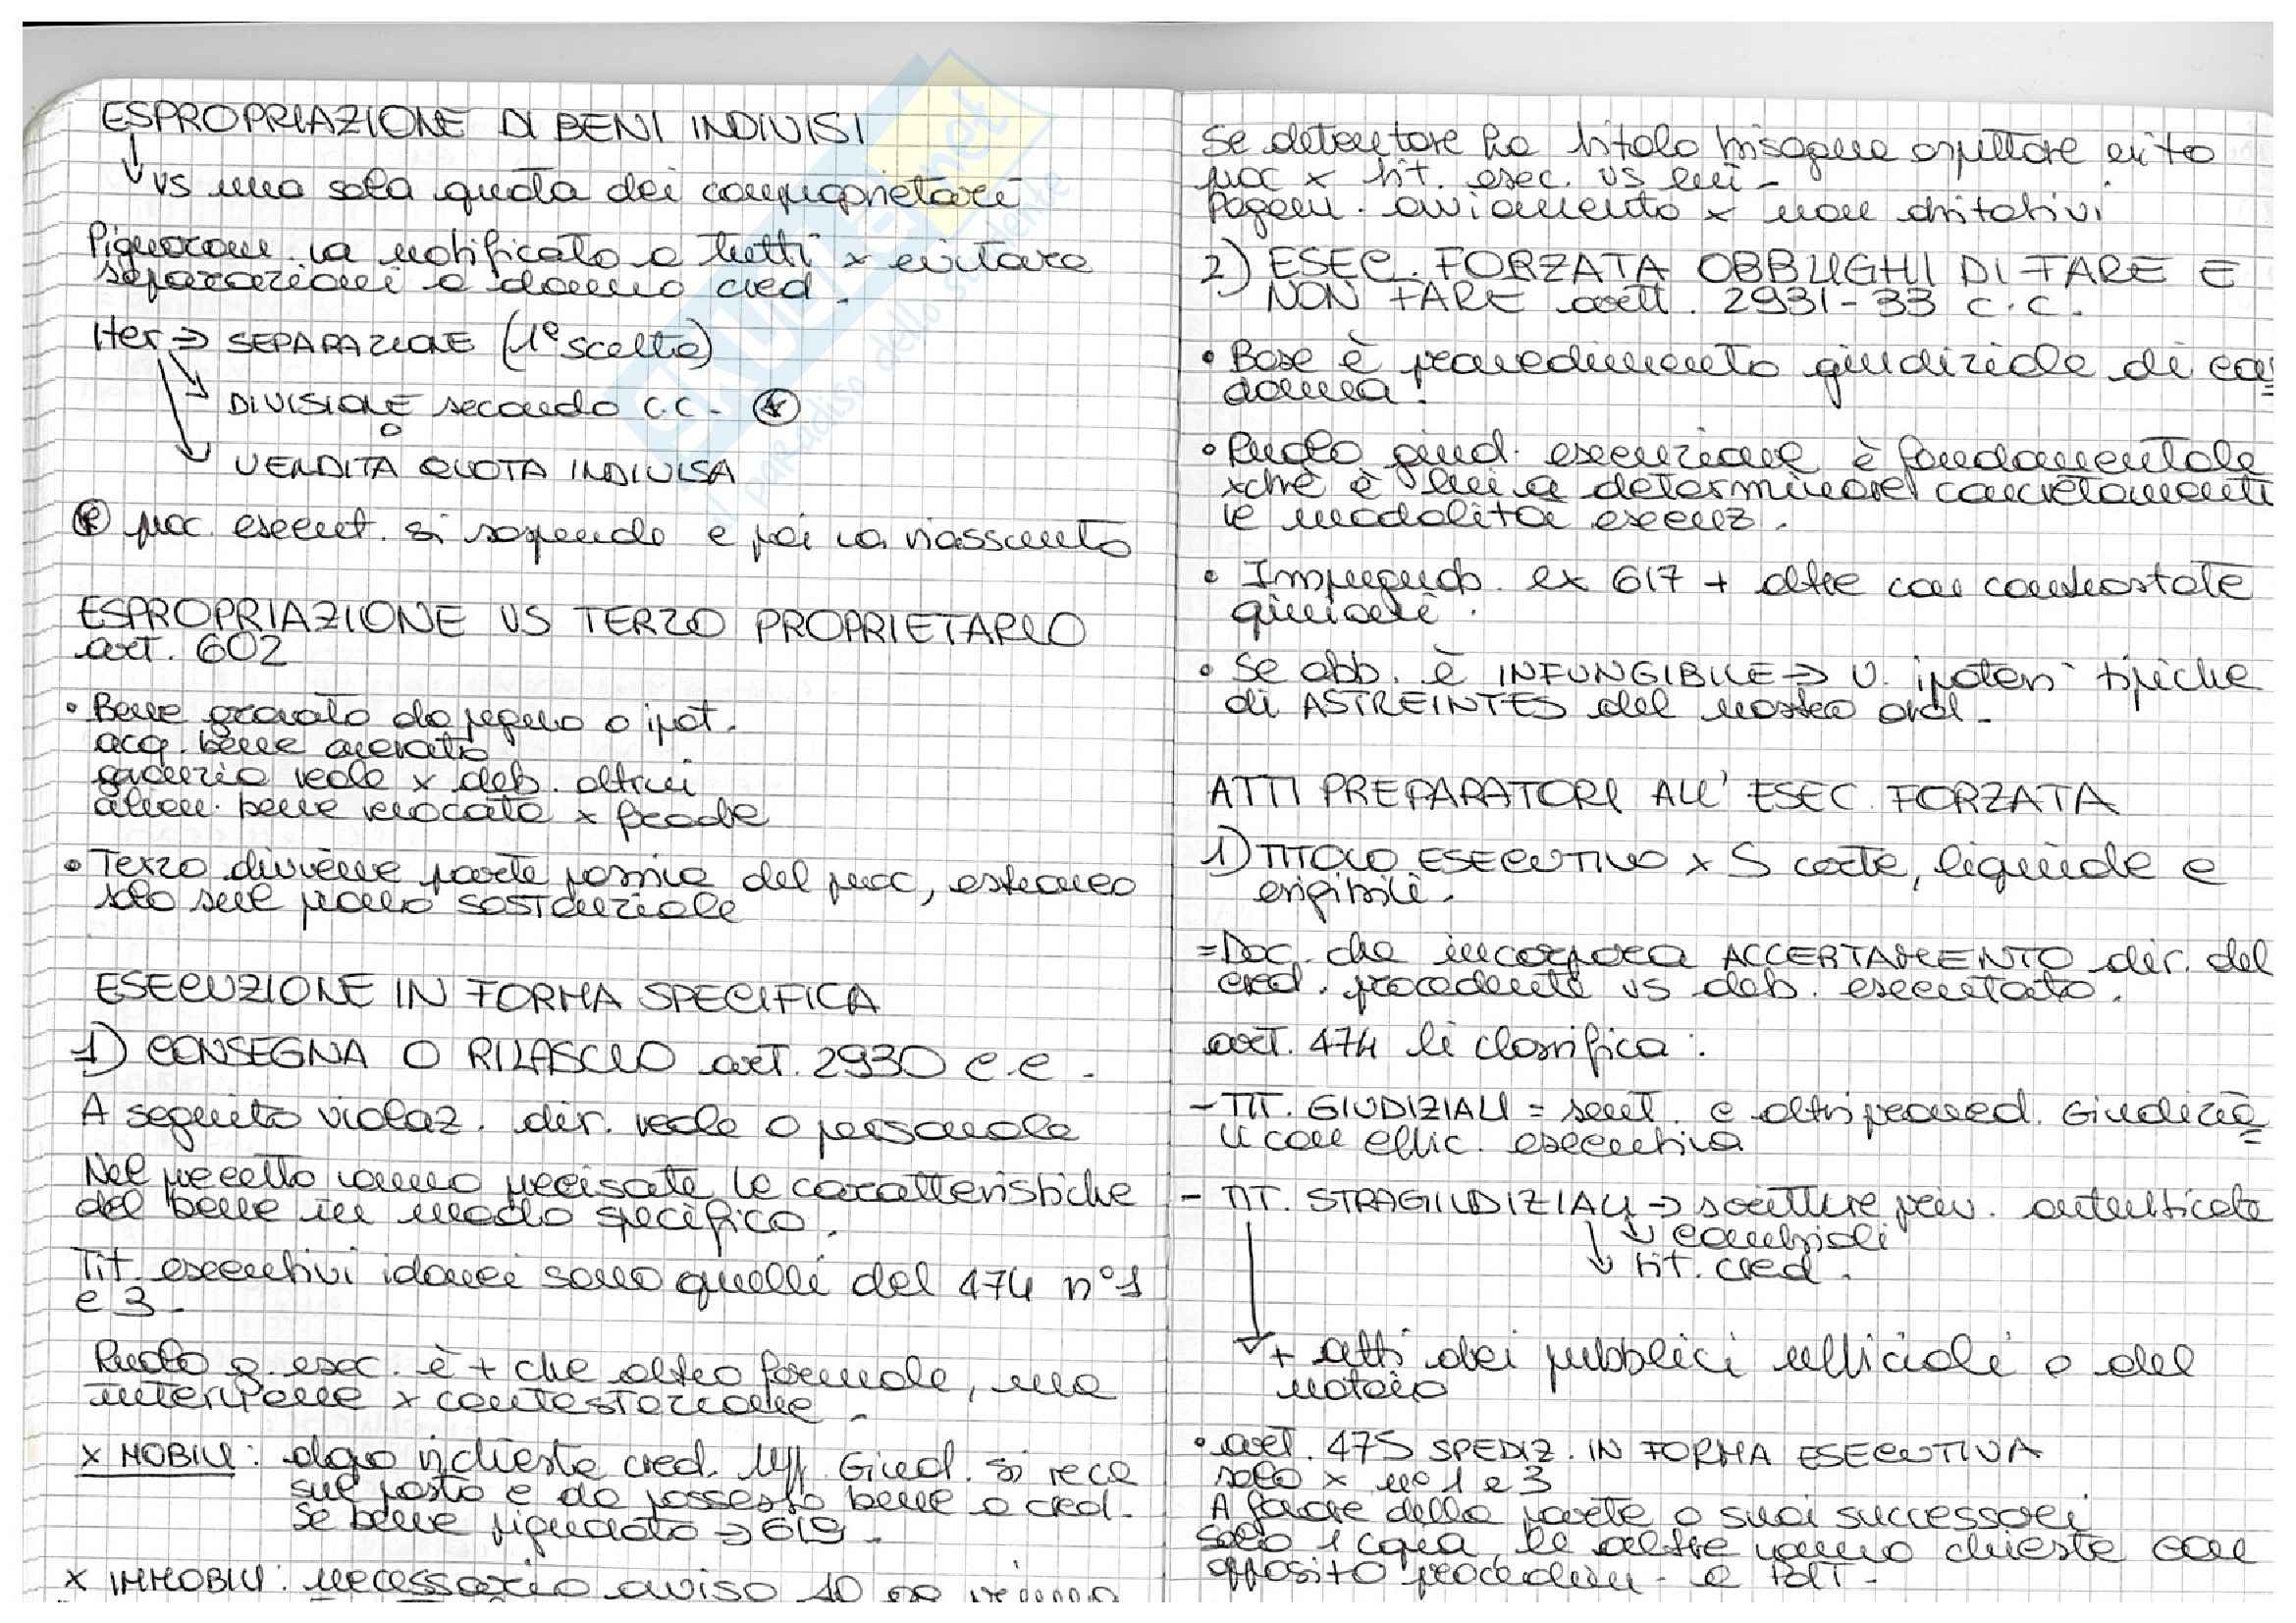 ESPROPRIAZIONE DI BENI INDIVISI
vs una sola quota dei comproprietari
Pignoram. va notificato a tutti x evitare
separazioni a danno cred.
Iter => SEPARAZIONE (1° scelta)
DIVISIONE secondo c.c.
o
VENDITA QUOTA INDIVISA
proc. esecut. si sospende e poi va riassunto
ESPROPRIAZIONE VS TERZO PROPRIETARIO
art. 602
• Bene gravato da pegno o ipot.
acq. bene
garanzia reale x deb. altrui
alien. bene revocata x frode
• Terzo diviene parte del proc, estraneo
solo sul piano sostanziale
ESECUZIONE IN FORMA SPECIFICA
1) CONSEGNA O RILASCIO art. 2930 c.c.
A seguito violaz. dir. reale o personale
Nel precetto vanno precisate le caratteristiche
del bene in modo specifico.
Tit. esecutivi idonei sono quelli del 474 n°1
e 3.
Ruolo g. esec. è + che altro formale, ma
interviene x contestazione.
x MOBILI: dopo richiesta cred. Uff. Giud. si reca
sul posto e da possesso bene a cred.
Se bene pignorato -> 619.
x IMMOBILI: necessario avviso 10 gg
SAPUERE.net
il paradiso dello studente
Se detentore ha titolo bisogna aspettare esito
proc x tit. esec. vs lui.
Pagam. avviamento x non abitativi
2) ESEC. FORZATA OBBLIGHI DI FARE E
NON FARE artt. 2931-33 c.c.
• Base è provvedimento giudiziale di con
danna!
• Ruolo giud. esecuzione è fondamentale
xchè è lui a determinare concretamente
le modalità esecuz.
• Impugnab. ex 617 + altre con contrastate
opinioni.
• Se obb. è INFUNGIBILE => v. ipotesi tipiche
di ASTREINTES del nostro ord.
ATTI PREPARATORI ALL' ESEC. FORZATA
1) TITOLO ESECUTIVO x S certe, liquide e
esigibili.
= Doc. che incorpora ACCERTAMENTO dir. del
cred. procedente vs deb. esecutato.
art. 474 li classifica:
- TIT. GIUDIZIALI = sent. e altri provved. giudizia
li con effic. esecutiva
- TIT. STRAGIUDIZIALI -> scritture priv. autenticate
cambiali
tit. cred.
+ atti dei pubblici ufficiali o del
notaio
• art. 475 SPEDIZ. IN FORMA ESECUTIVA
solo x n° 1 e 3
A favore della parte o suoi successori
solo 1 copia, le altre vanno chieste con
apposito procedim.